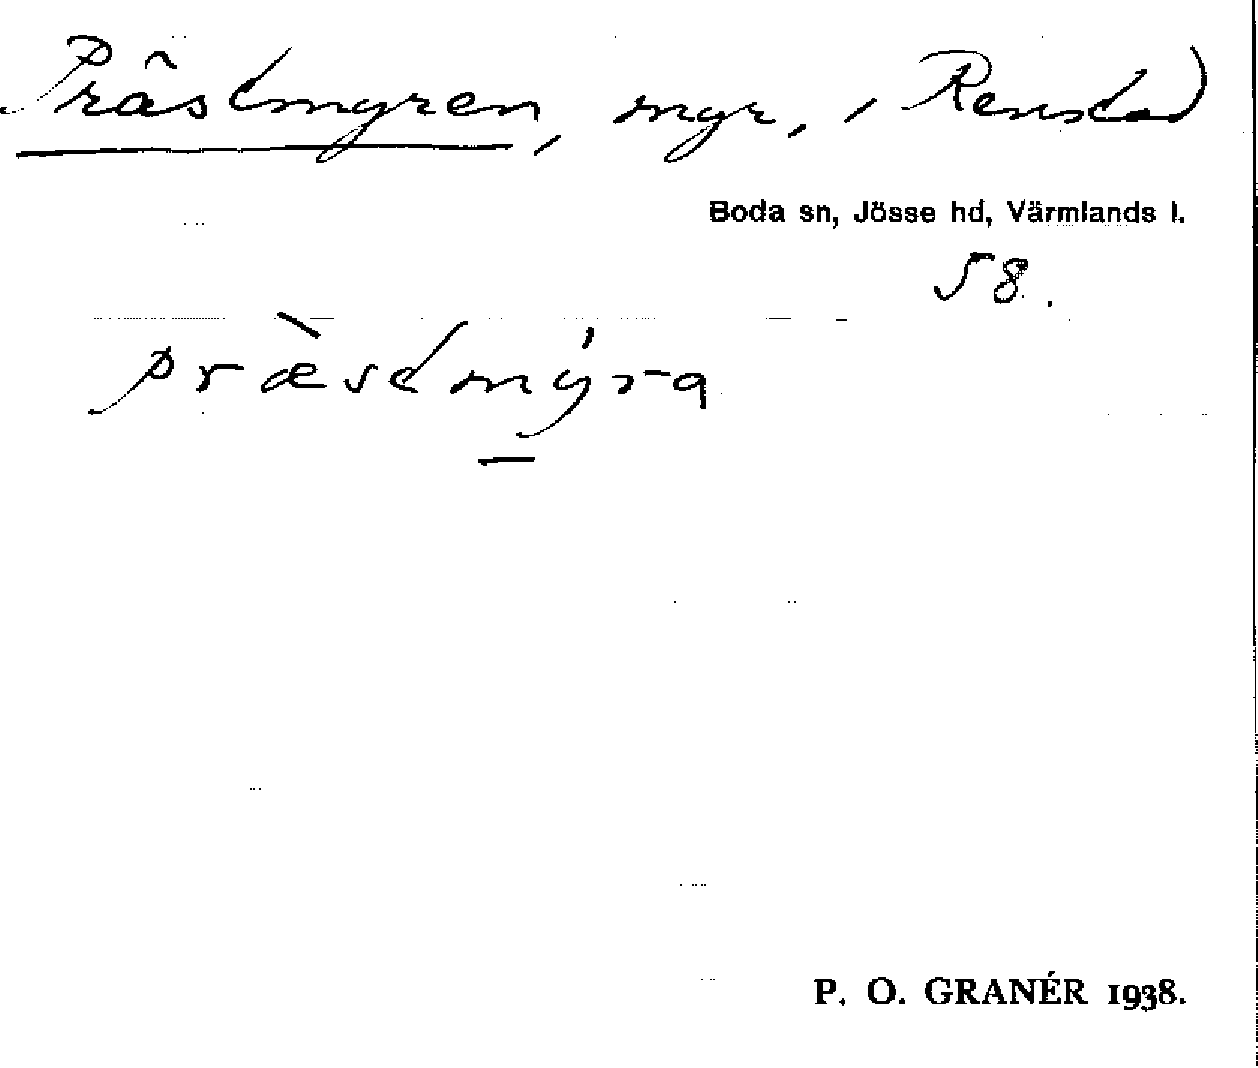 Prästmyren, myr, i Renstad
Boda sn, Jösse hd, Värmlands l.
58.
præ̀stmýra
P. O. GRANÉR 1938.